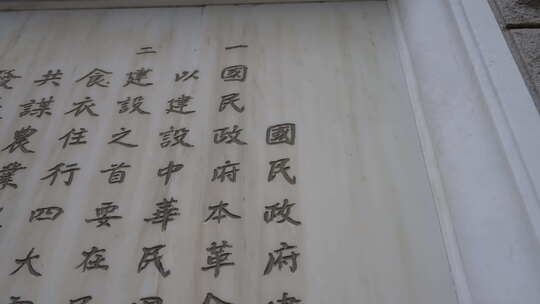 國民政府建
一國民政府本革命
以建設中華民國
二建設之首要在民
食衣住行四大
共謀農業
發